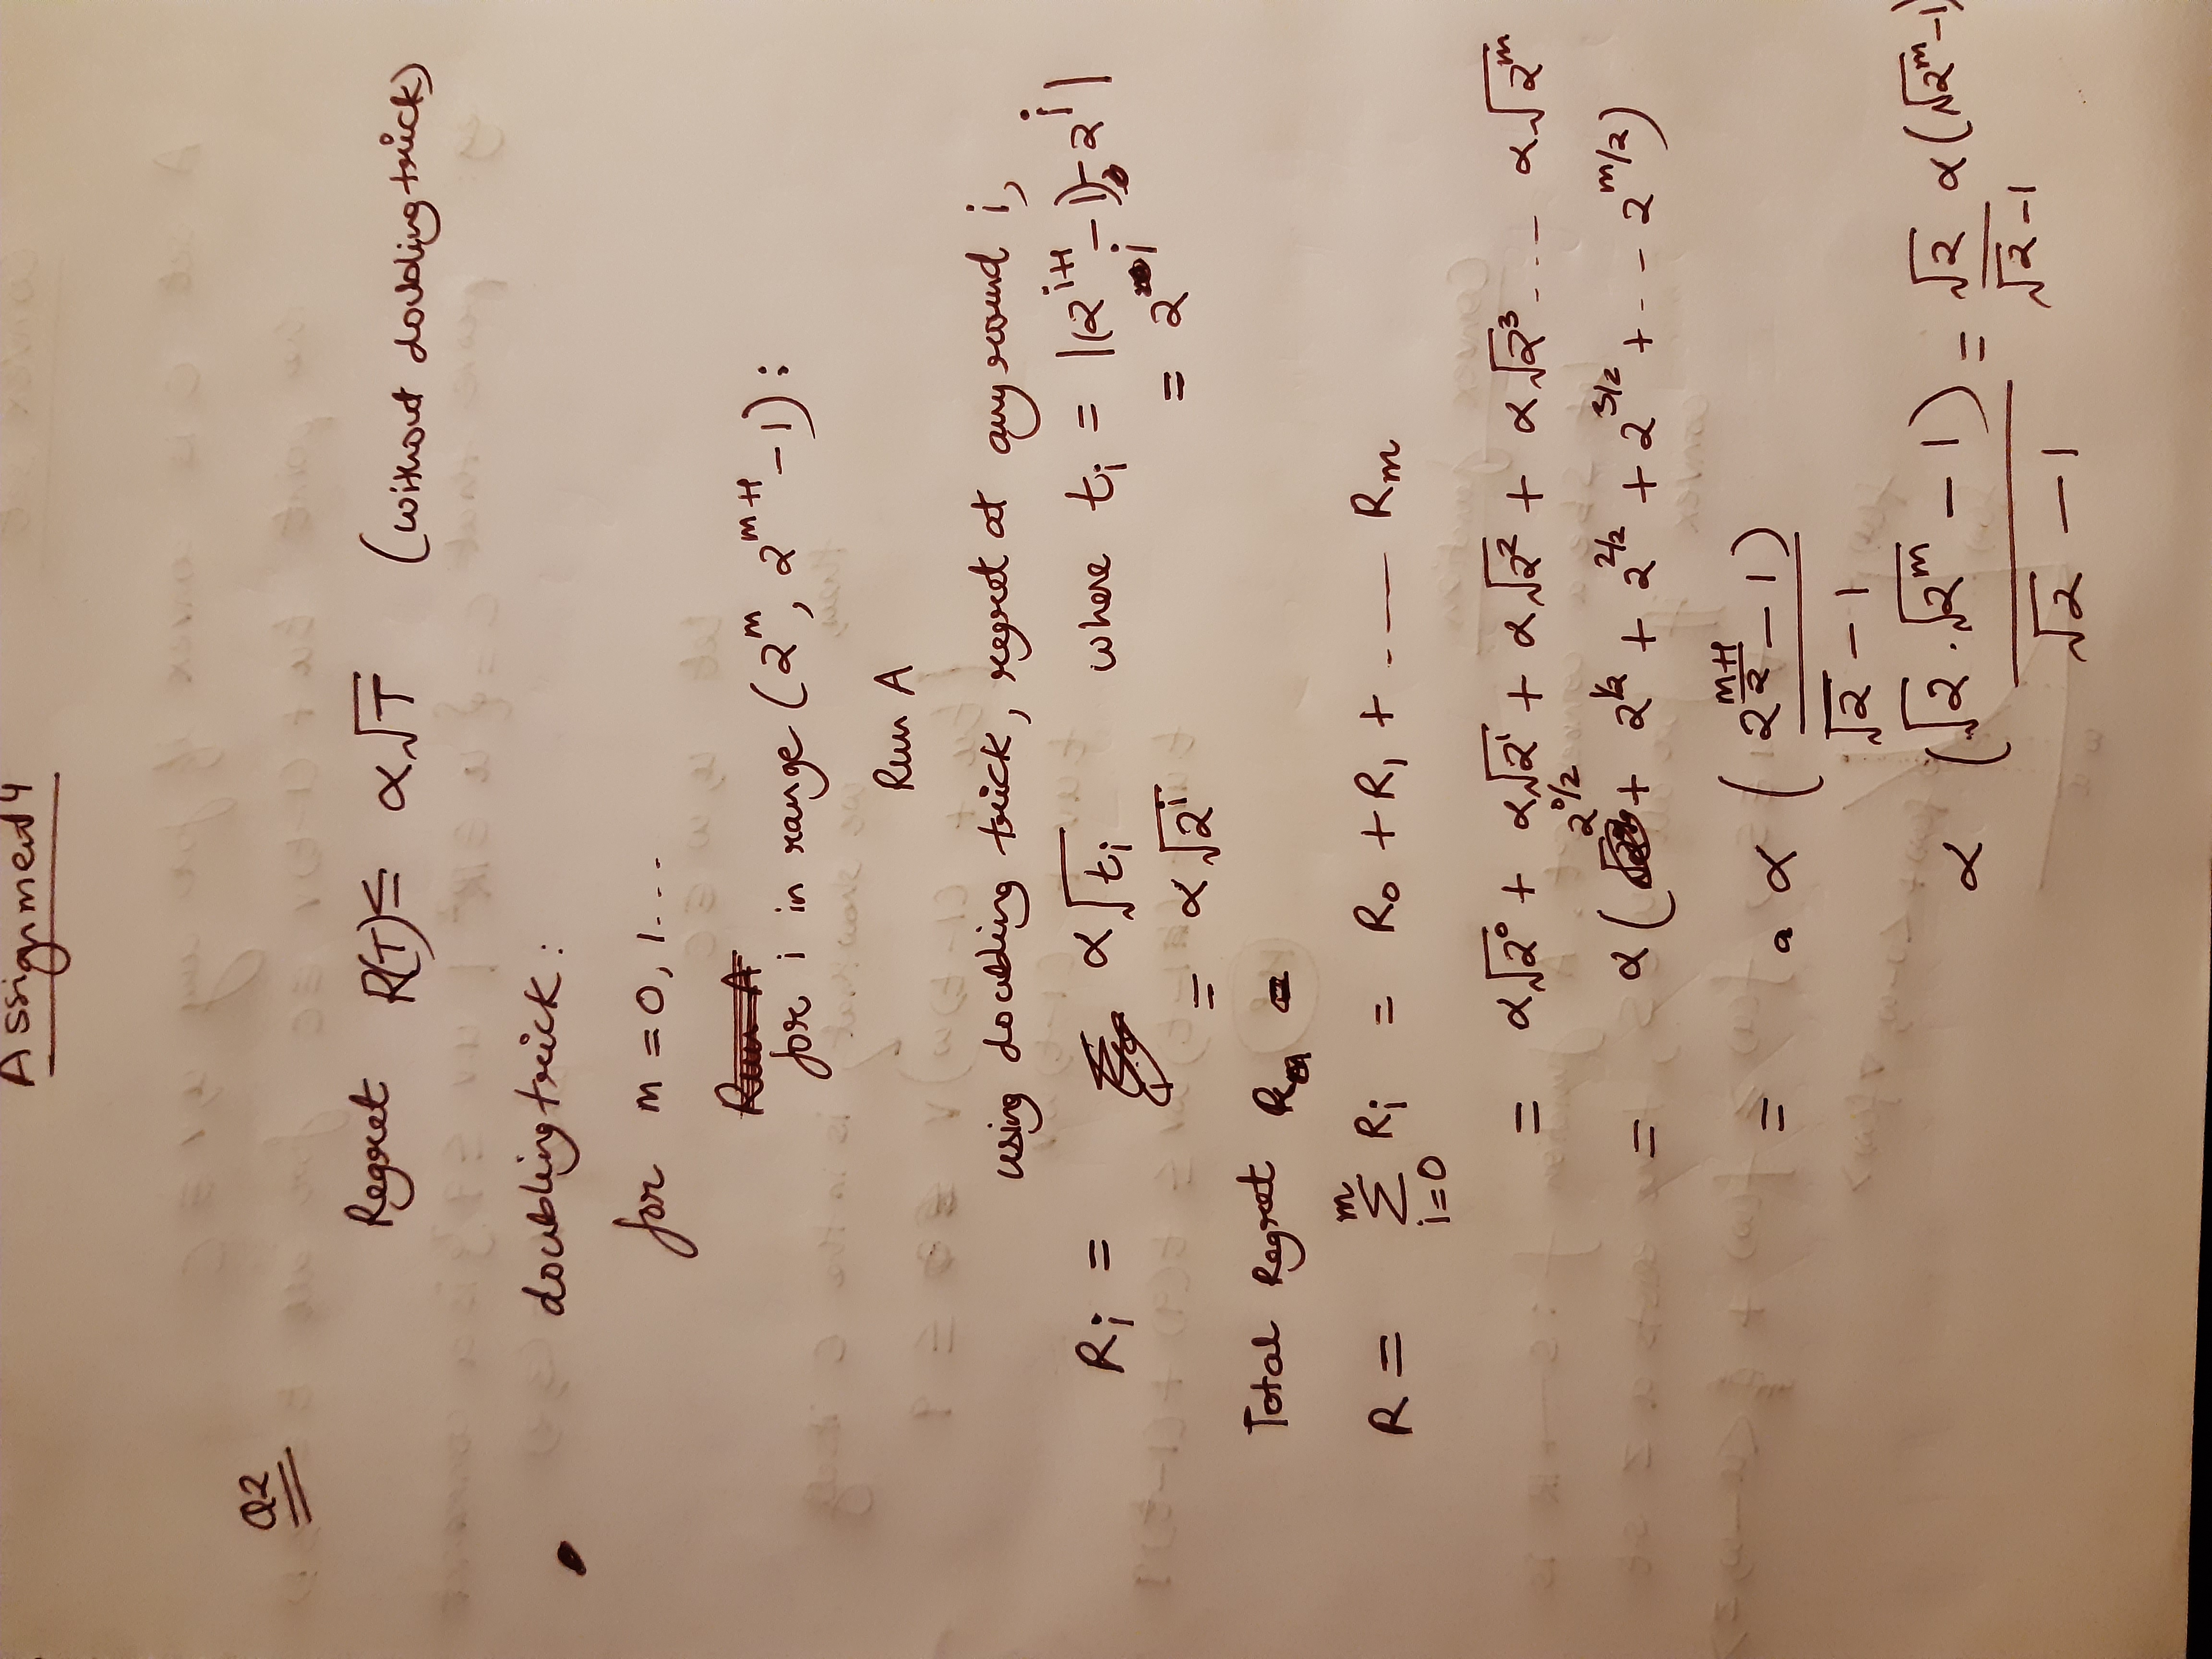 Assignment 4
Q2
Regret R(T) ≤ α√T (without doubling trick)
doubling trick:
for m = 0, 1...
for i in range (2^m, 2^(m+1) - 1):
Run A
using doubling trick, regret at any round i,
R_i = α√t_i where t_i = |(2^(i+1) - 1) - 2^i|
= α√2^i = 2^i
Total Regret
R = Σ_{i=0}^{m} R_i = R_0 + R_1 + ... R_m
= α√2^0 + α√2^1 + α√2^2 + α√2^3 ... α√2^m
= α (2^(0/2) + 2^(1/2) + 2^(2/2) + 2^(3/2) + ... 2^(m/2))
= α (2^((m+1)/2) - 1) / (√2 - 1)
α (√2 . √2^m - 1) / (√2 - 1) = √2 / (√2 - 1) α (√2^m - 1)